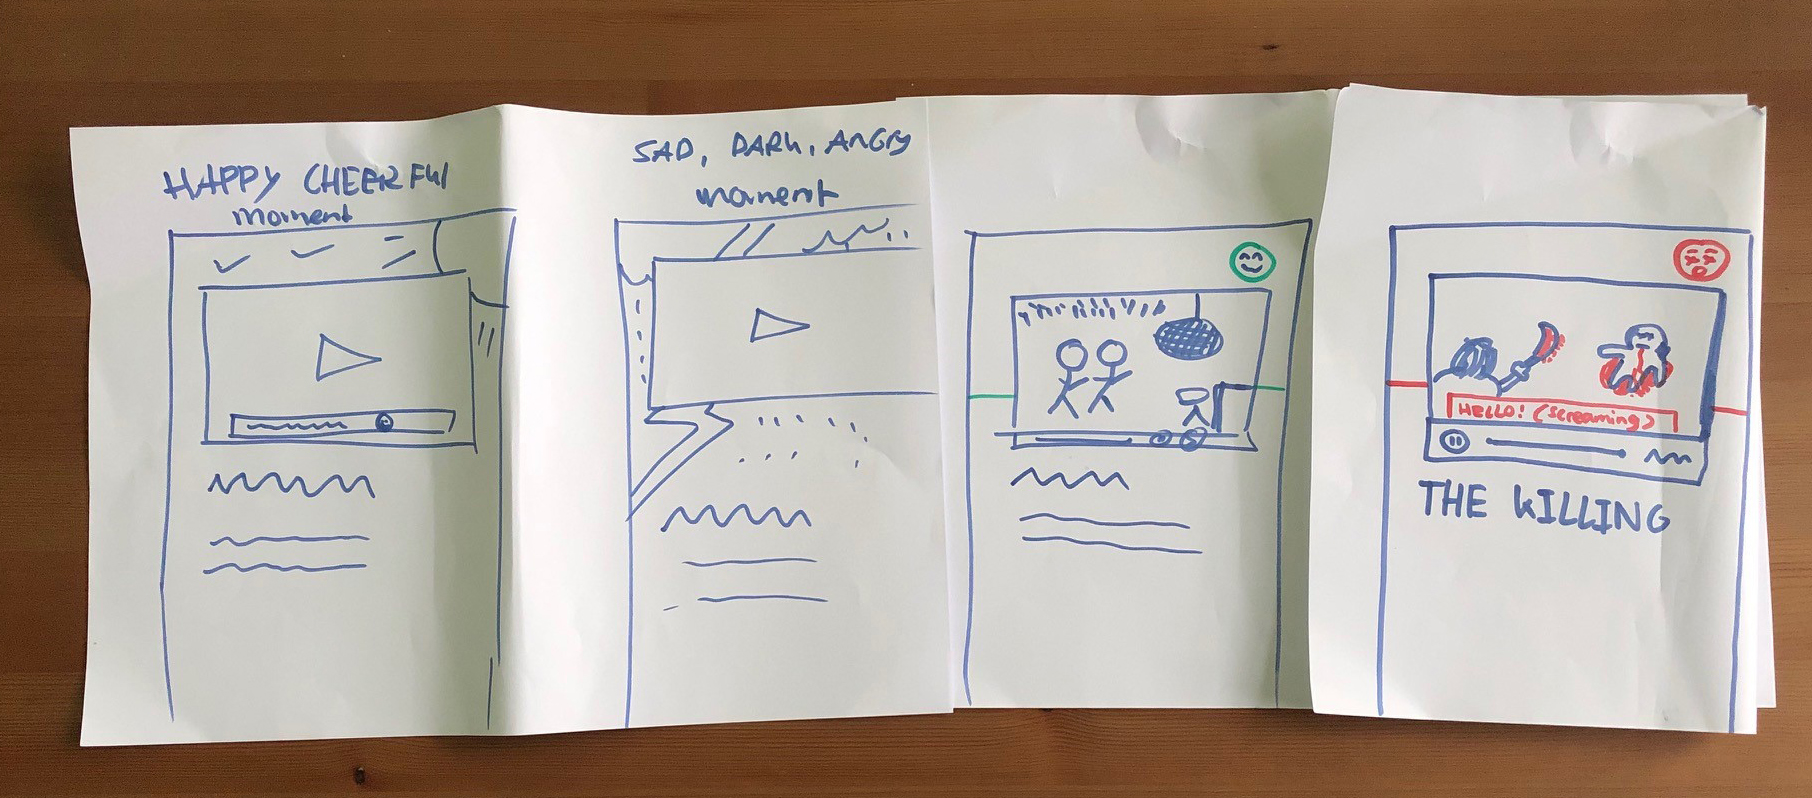 HAPPY CHEERFUL
moment
SAD, DARK, ANGRY
moment
HELLO! (screaming)
THE KILLING